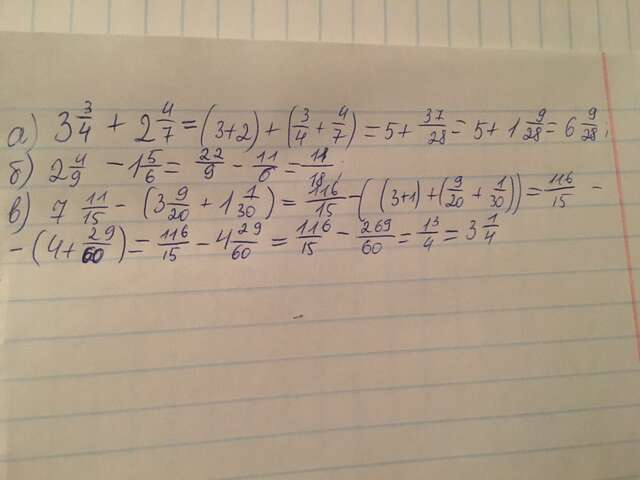 а) 3 3/4 + 2 4/7 = (3+2) + (3/4 + 4/7) = 5 + 37/28 = 5 + 1 9/28 = 6 9/28;
б) 2 4/9 - 1 5/6 = 22/9 - 11/6 = 11/18;
в) 7 11/15 - (3 9/20 + 1 1/30) = 116/15 - ((3+1) + (9/20 + 1/30)) = 116/15 -
- (4 + 29/60) = 116/15 - 4 29/60 = 116/15 - 269/60 = 13/4 = 3 1/4